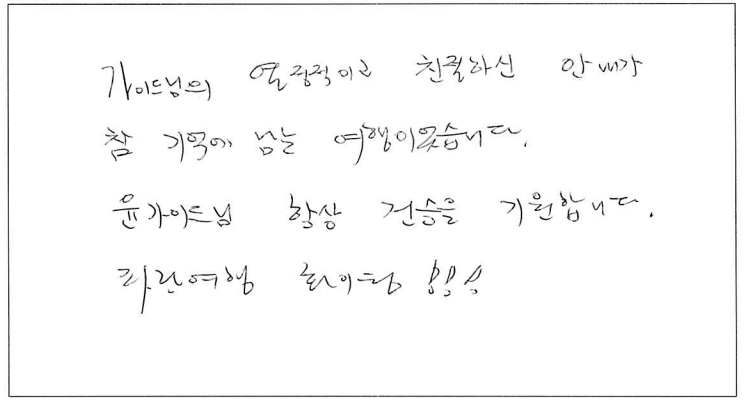 가이드님의 열정적이고 친절하신 안내가
참 기억에 남는 여행이었습니다.
윤가이드님 항상 건승을 기원합니다.
파란여행 화이팅!!!